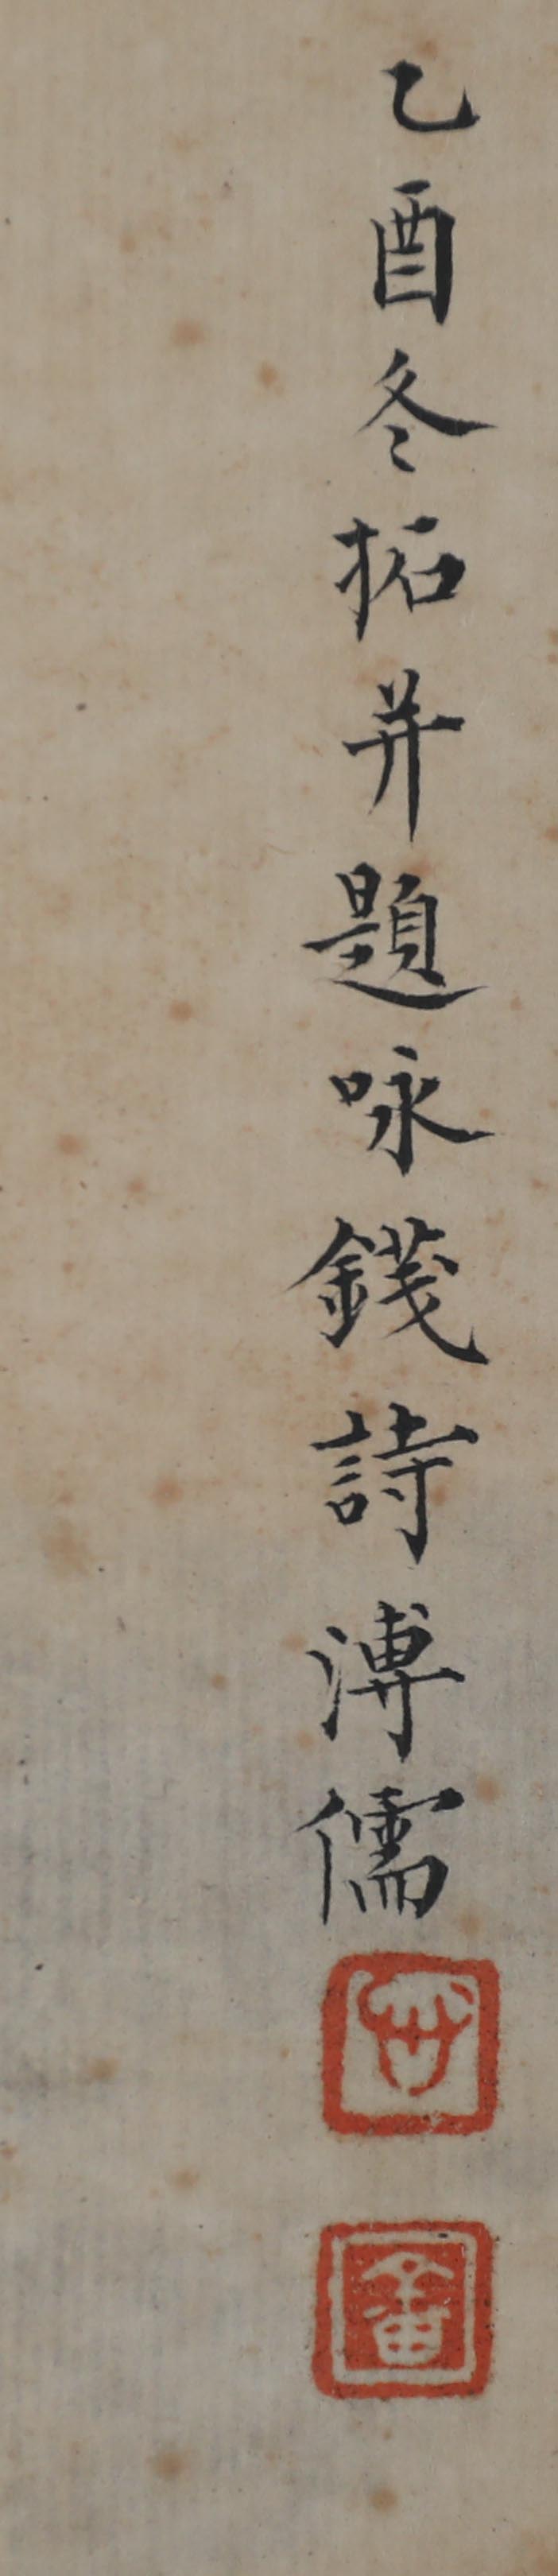 乙酉冬拓并題咏錢詩溥儒